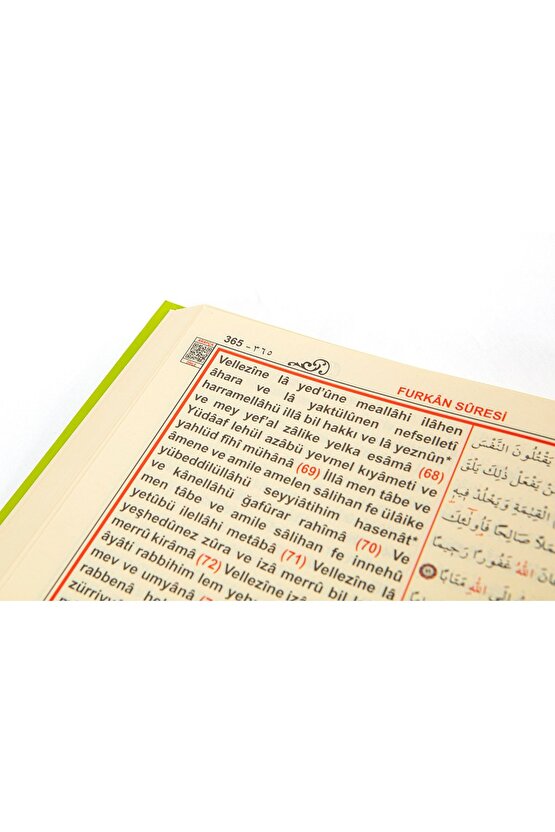 365 - ٣٦٥
FURKÂN SÛRESİ
Vellezîne lâ yed'ûne meallâhi ilâhen
âhara ve lâ yaktülûnen nefselletî
harramellâhü illâ bil hakkı ve lâ yeznûn*
ve mey yef'al zâlike yelka esâmâ (68)
Yüdâaf lehül azâbü yevmel kıyâmeti ve
yahlüd fîhî mühânâ (69) İllâ men tâbe ve
âmene ve amile amelen sâlihan fe ülâike
yübeddilüllâhü seyyiâtihim hasenât*
ve kânellâhü ğafûrar rahîmâ (70) Ve
men tâbe ve amile sâlihan fe innehû
yetûbü ilellâhi metâbâ (71) Vellezîne lâ
yeşhedûnez zûra ve izâ merrû bil
merrû kirâmâ (72) Vellezîne izâ
âyâti rabbihim lem yehı
mev ve umyânâ
rabbenâ
zürriyy
يَقْتُلُونَ النَّفْسَ
يَفْعَلْ ذٰلِكَ يَلْقَ
الْقِيٰمَةِ وَيَخْلُدْ فِيهِ
صَالِحًا فَاُولٰٓئِكَ
اللّٰهُ غَفُورًا رَحِيمًا
اللّٰهِ مَتَابًا